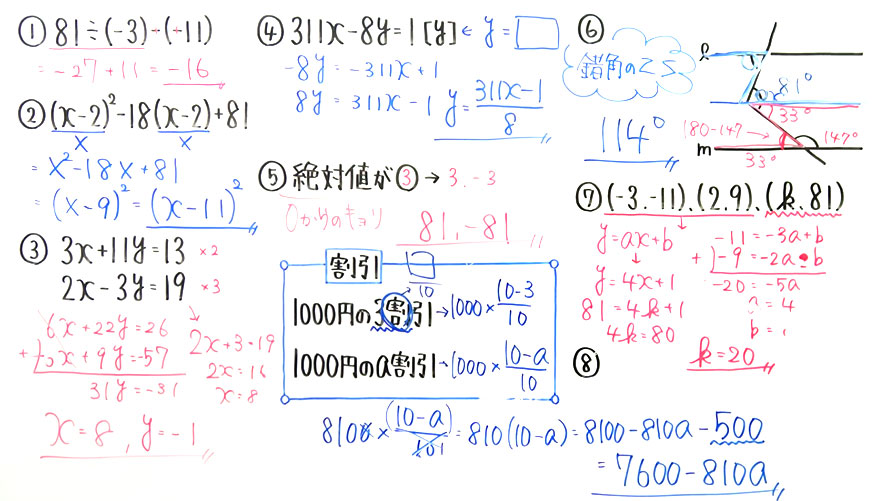 ① 81÷(-3)-(-11)
= -27+11 = -16
② (x-2)²-18(x-2)+81
X X
= X²-18X+81
= (X-9)² = (x-11)²
③ 3x+11y=13 ×2
2x-3y=19 ×3
6x+22y=26
+ -6x+9y=-57
31y=-31
2x+3=19
2x=16
x=8
x=8, y=-1
④ 311x-8y=1 [y] ← y=□
-8y=-311x+1
8y=311x-1 y=311x-1/8
⑤ 絶対値が③→3.-3
0からのキョリ
81,-81
割引 □/10
1000円の3割引→1000×10-3/10
1000円のa割引→1000×10-a/10
⑥
錯角のZS
114°
ℓ
81°
33°
180-147
147°
m
33°
⑦ (-3.-11).(2.9).(k.81)
y=ax+b
y=4x+1
81=4k+1
4k=80
-11=-3a+b
+ -9=-2a-b
-20=-5a
a=4
b=1
k=20
⑧
8100×(10-a)/10=810(10-a)=8100-810a-500
=7600-810a